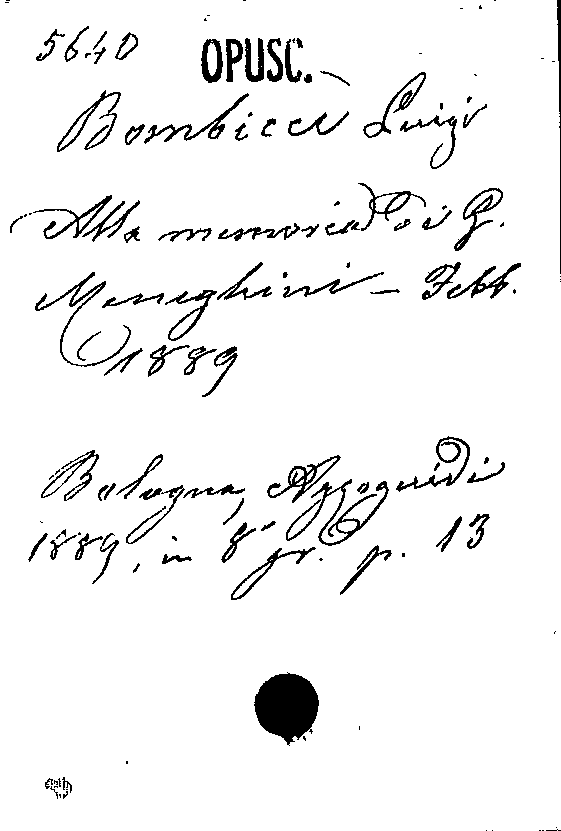 5640 OPUSC.
Bombicci Luigi
Alla memoria di G.
Meneghini - Febb.
1889
Bologna, Azzoguidi
1889, in 8° gr. p. 13